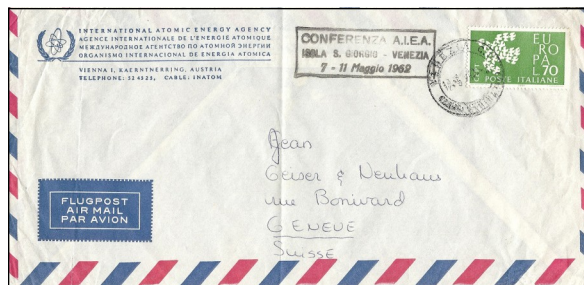 INTERNATIONAL ATOMIC ENERGY AGENCY
AGENCE INTERNATIONALE DE L'ENERGIE ATOMIQUE
МЕЖДУНАРОДНОЕ АГЕНТСТВО ПО АТОМНОЙ ЭНЕРГИИ
ORGANISMO INTERNACIONAL DE ENERGIA ATOMICA
VIENNA I, KAERNTNERRING, AUSTRIA
TELEPHONE: 52 45 25, CABLE: INATOM
CONFERENZA A.I.E.A.
ISOLA S. GIORGIO - VENEZIA
7 - 11 Maggio 1962
EU
RO
PA
L 70
POSTE ITALIANE
Jean
&
rue Bonivard
GENEVE
SUISSE
FLUGPOST
AIR MAIL
PAR AVION